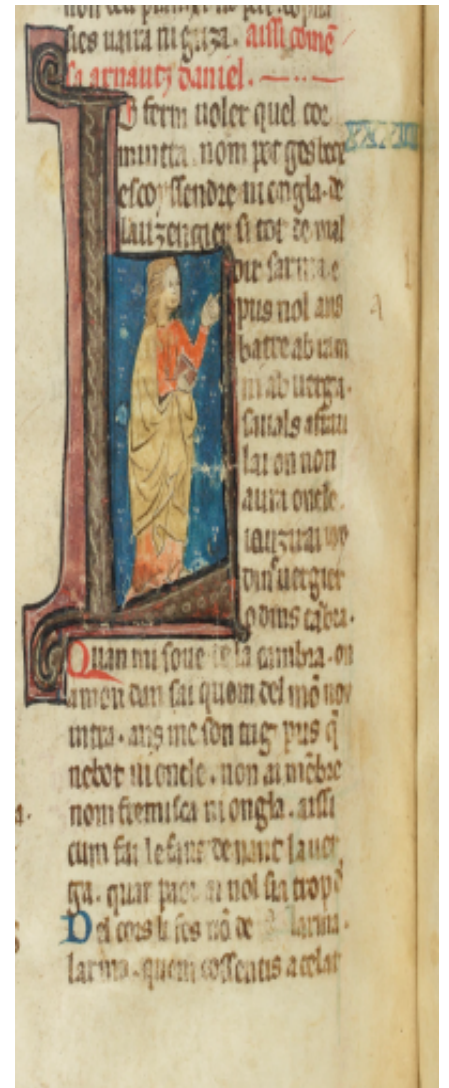 fies uaira ni guza. aissi comē
fa arnautz daniel.
O ferm uoler quel cor
mintra. nom pot ges becx
escoyssendre ni ongla. de
lauzengier si tot de mal
dir sarma. e
pus nol aus
batre ab ram
ni ab uerga.
siuals a frau
lai on non
aura oncle.
iauzirai ioy
dinz uergier
o dins cābra.
Quan mi soue de la cambra. on
a mon dan sai quom del mō noy
intra. ans me son tug pus q̄
nebot ni oncle. non ai mēbre
nom fremisca ni ongla. aissi
cum fai lefant denant la uer
ga. quar paor ai nol sia trop
Del cors li fos nō de larma.
larma. quem cossentis a celat
XXVII